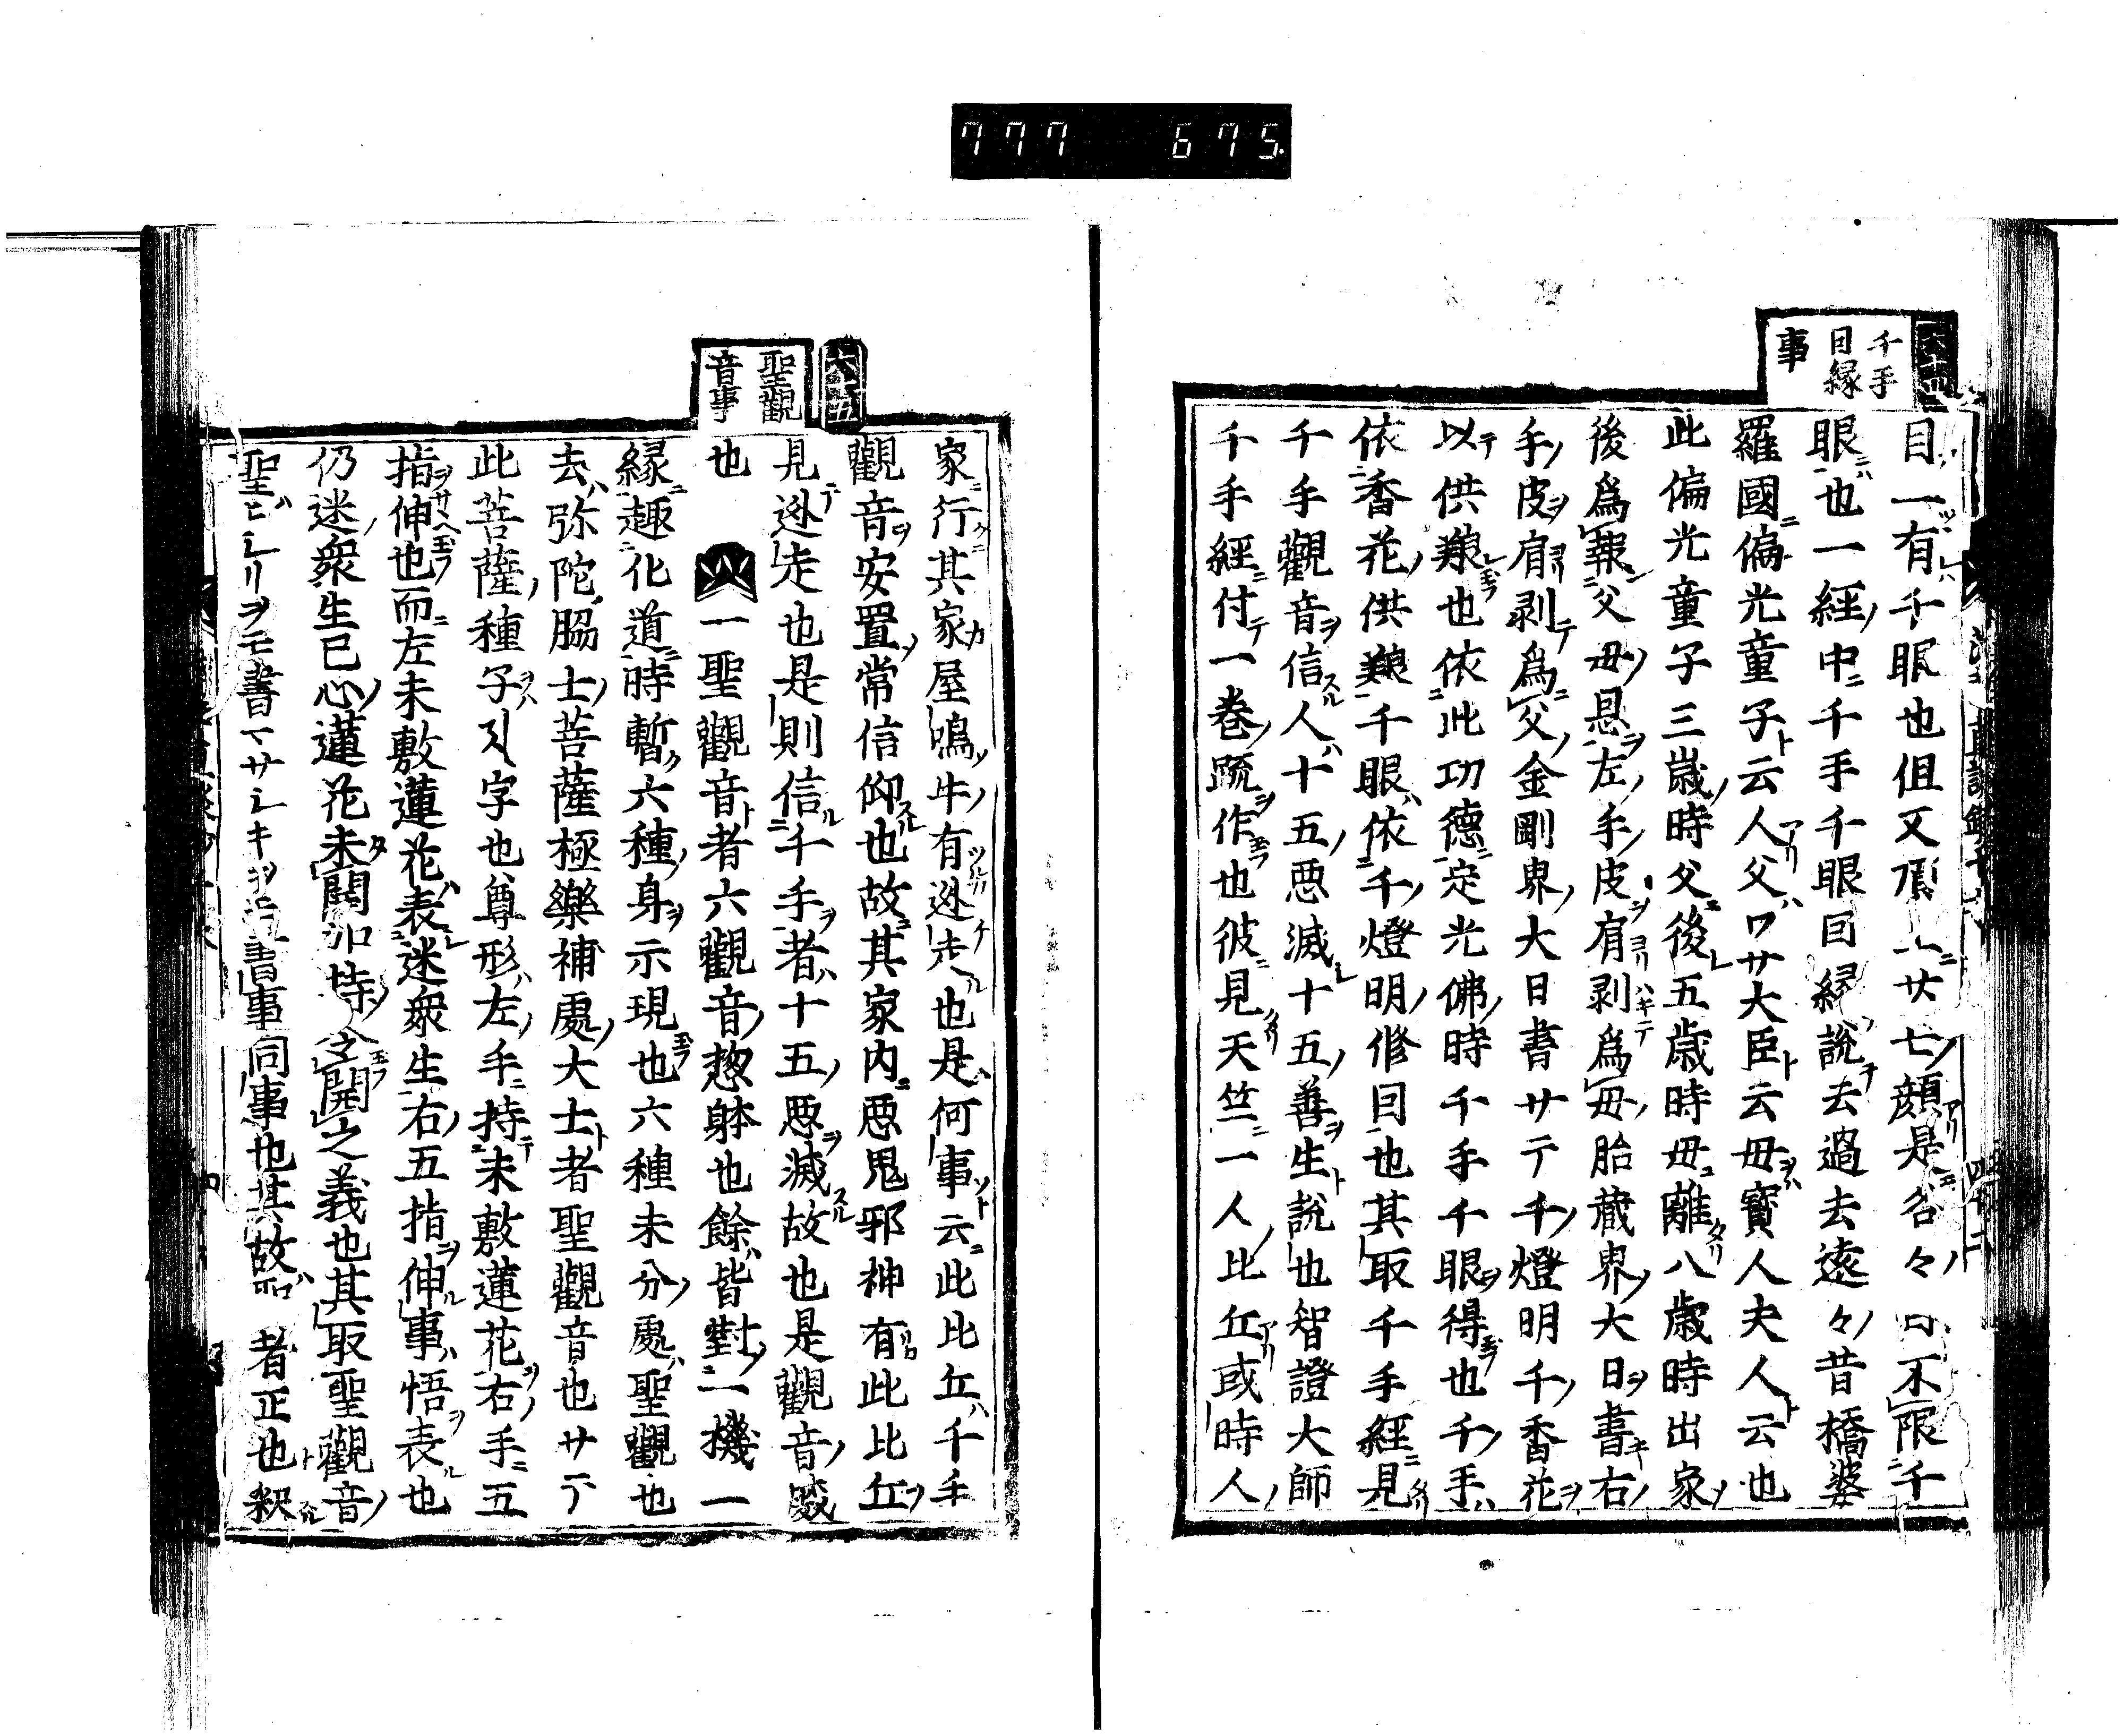 777 675
千手
因縁
事
目一有千眼也但又頂上廿七顔是各々口不限千
眼也一經中千手千眼因縁説去過去遠々昔橋婆
羅國偏光童子云人父ワサ大臣云母寳人夫人云也
此偏光童子三歳時父後五歳時母離八歳時出家
後爲報父母恩左手皮肩剥爲母胎藏界大日書右
手皮肩剥爲父金剛界大日書サテ千燈明千香花
以供養也依此功德定光佛時千手千眼得也千手
依香花供養千眼依千燈明修因也其取千手經見
千手觀音信人十五悪滅十五善生説也智證大師
千手經付一巻䟽作也彼見天竺一人比丘或時人
六十五
聖觀
音事
家行其家屋鳴牛有迯走也是何事云此比丘千手
觀音安置常信仰也故其家内悪鬼邪神有此比丘
見迯走也是則信千手者十五悪滅故也是觀音
也 一聖觀音者六觀音惣躰也餘皆對一機一
縁趣化道時暫六種身示現也六種未分處聖觀也
去弥陀脇士菩薩極樂補處大士者聖觀音也サテ
此菩薩種子字也尊形左手持未敷蓮花右手五
指伸也而左未敷蓮花表迷衆生右五指伸事悟表也
仍迷衆生已心蓮花未開加持令開之義也其取聖觀音
聖ヒシリヲモ書マサシキヲ書事同事也其故者正也釈